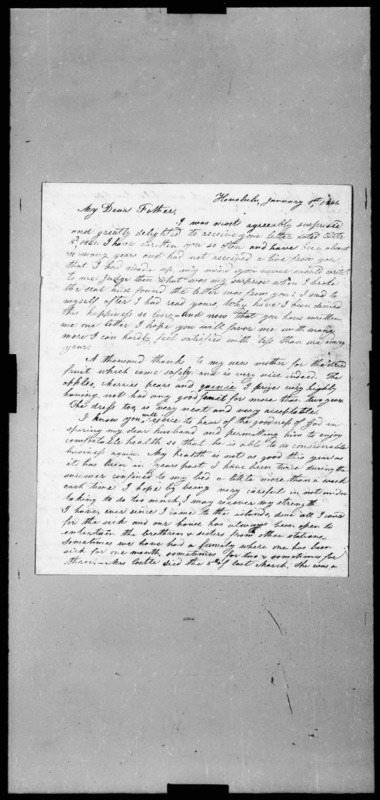 Honolulu, January 1st, 184
My Dear Father,
I was most agreeably surprised
and greatly delighted to receive your letter dated
I have written you so often and have been absent
so many years and had not received a line from you
that I had made up my mind you never would write
to me. Judge then what was my surprise when I broke
the seal and found the letter was from you! I said to
myself after I had read yours, why have I been denied
this happiness so long, and now that you have written
me one letter I hope you will favor me with many
more I can hardly feel satisfied with less than one every
year.
A thousand thanks to my new mother for the dried
fruit which came safely and is very nice indeed, the
apples, cherries pears and quince I prize very highly
having not had any good fruit for more than two years.
The dress too is very neat and very acceptable.
I know you will rejoice to hear of the goodness of God in
sparing my dear husband and permitting him to enjoy
comfortable health so that he is able to do considerable
business again. My health is not as good this year as
it has been in years past I have been twice during the
summer confined to my bed a little more than a week
each time. I hope by being very careful in not under
taking to do too much, I may recover my strength.
I have, ever since I came to the islands, done all I could
for the sick and our house has always been open to
entertain the brethren & sisters from other stations.
Sometimes we have had a family where one has been
sick for one month, sometimes for two & sometimes for
three. Mrs died the of last March. She was a